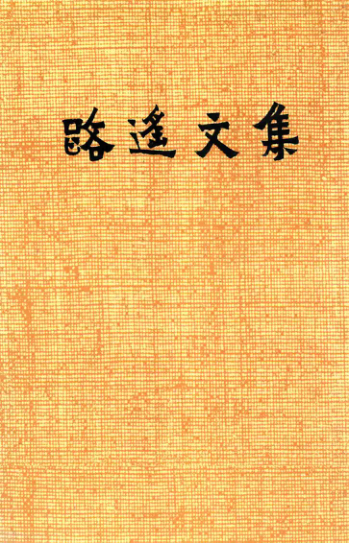 路遥文集